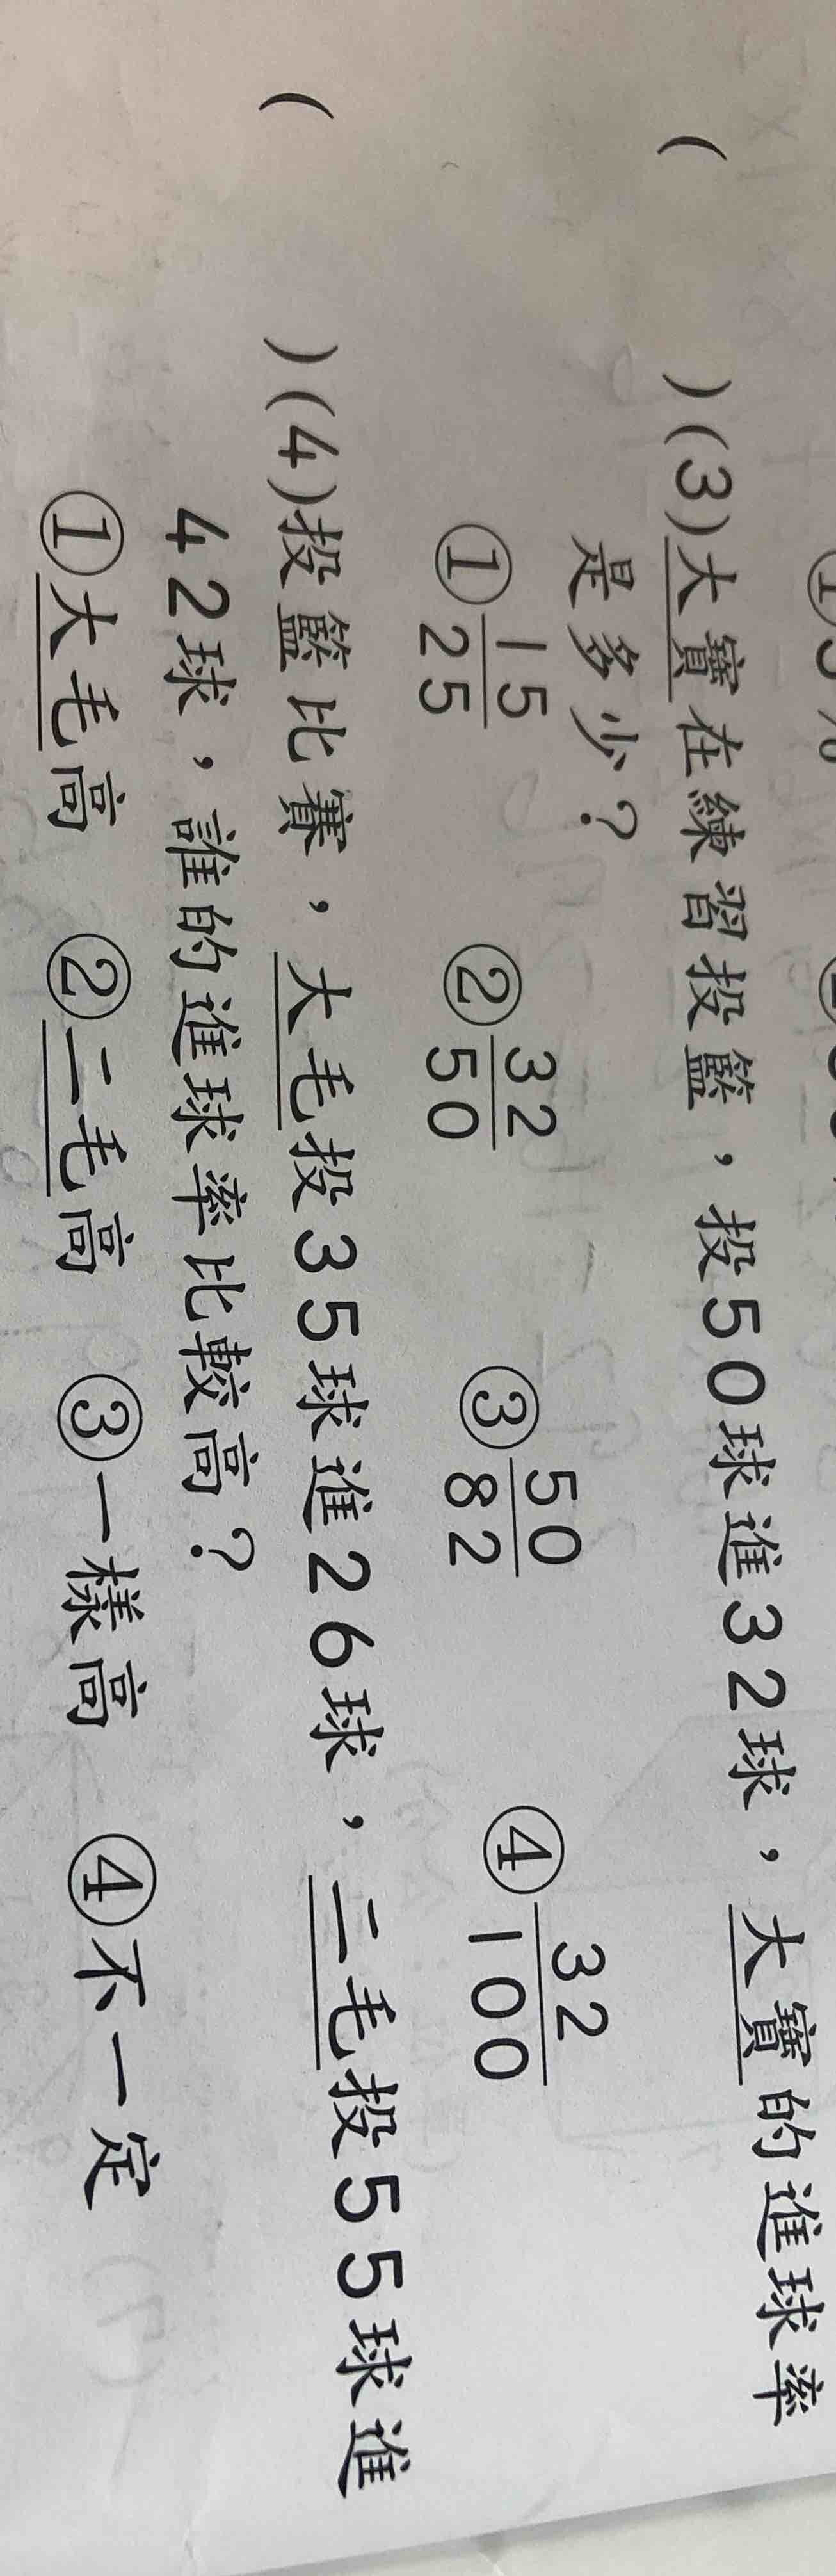 (　　)(3)大寶在練習投籃，投50球進32球，大寶的進球率
是多少？
①15/25 ②32/50 ③50/82 ④32/100
(　　)(4)投籃比賽，大毛投35球進26球，二毛投55球進
42球，誰的進球率比較高？
①大毛高 ②二毛高 ③一樣高 ④不一定